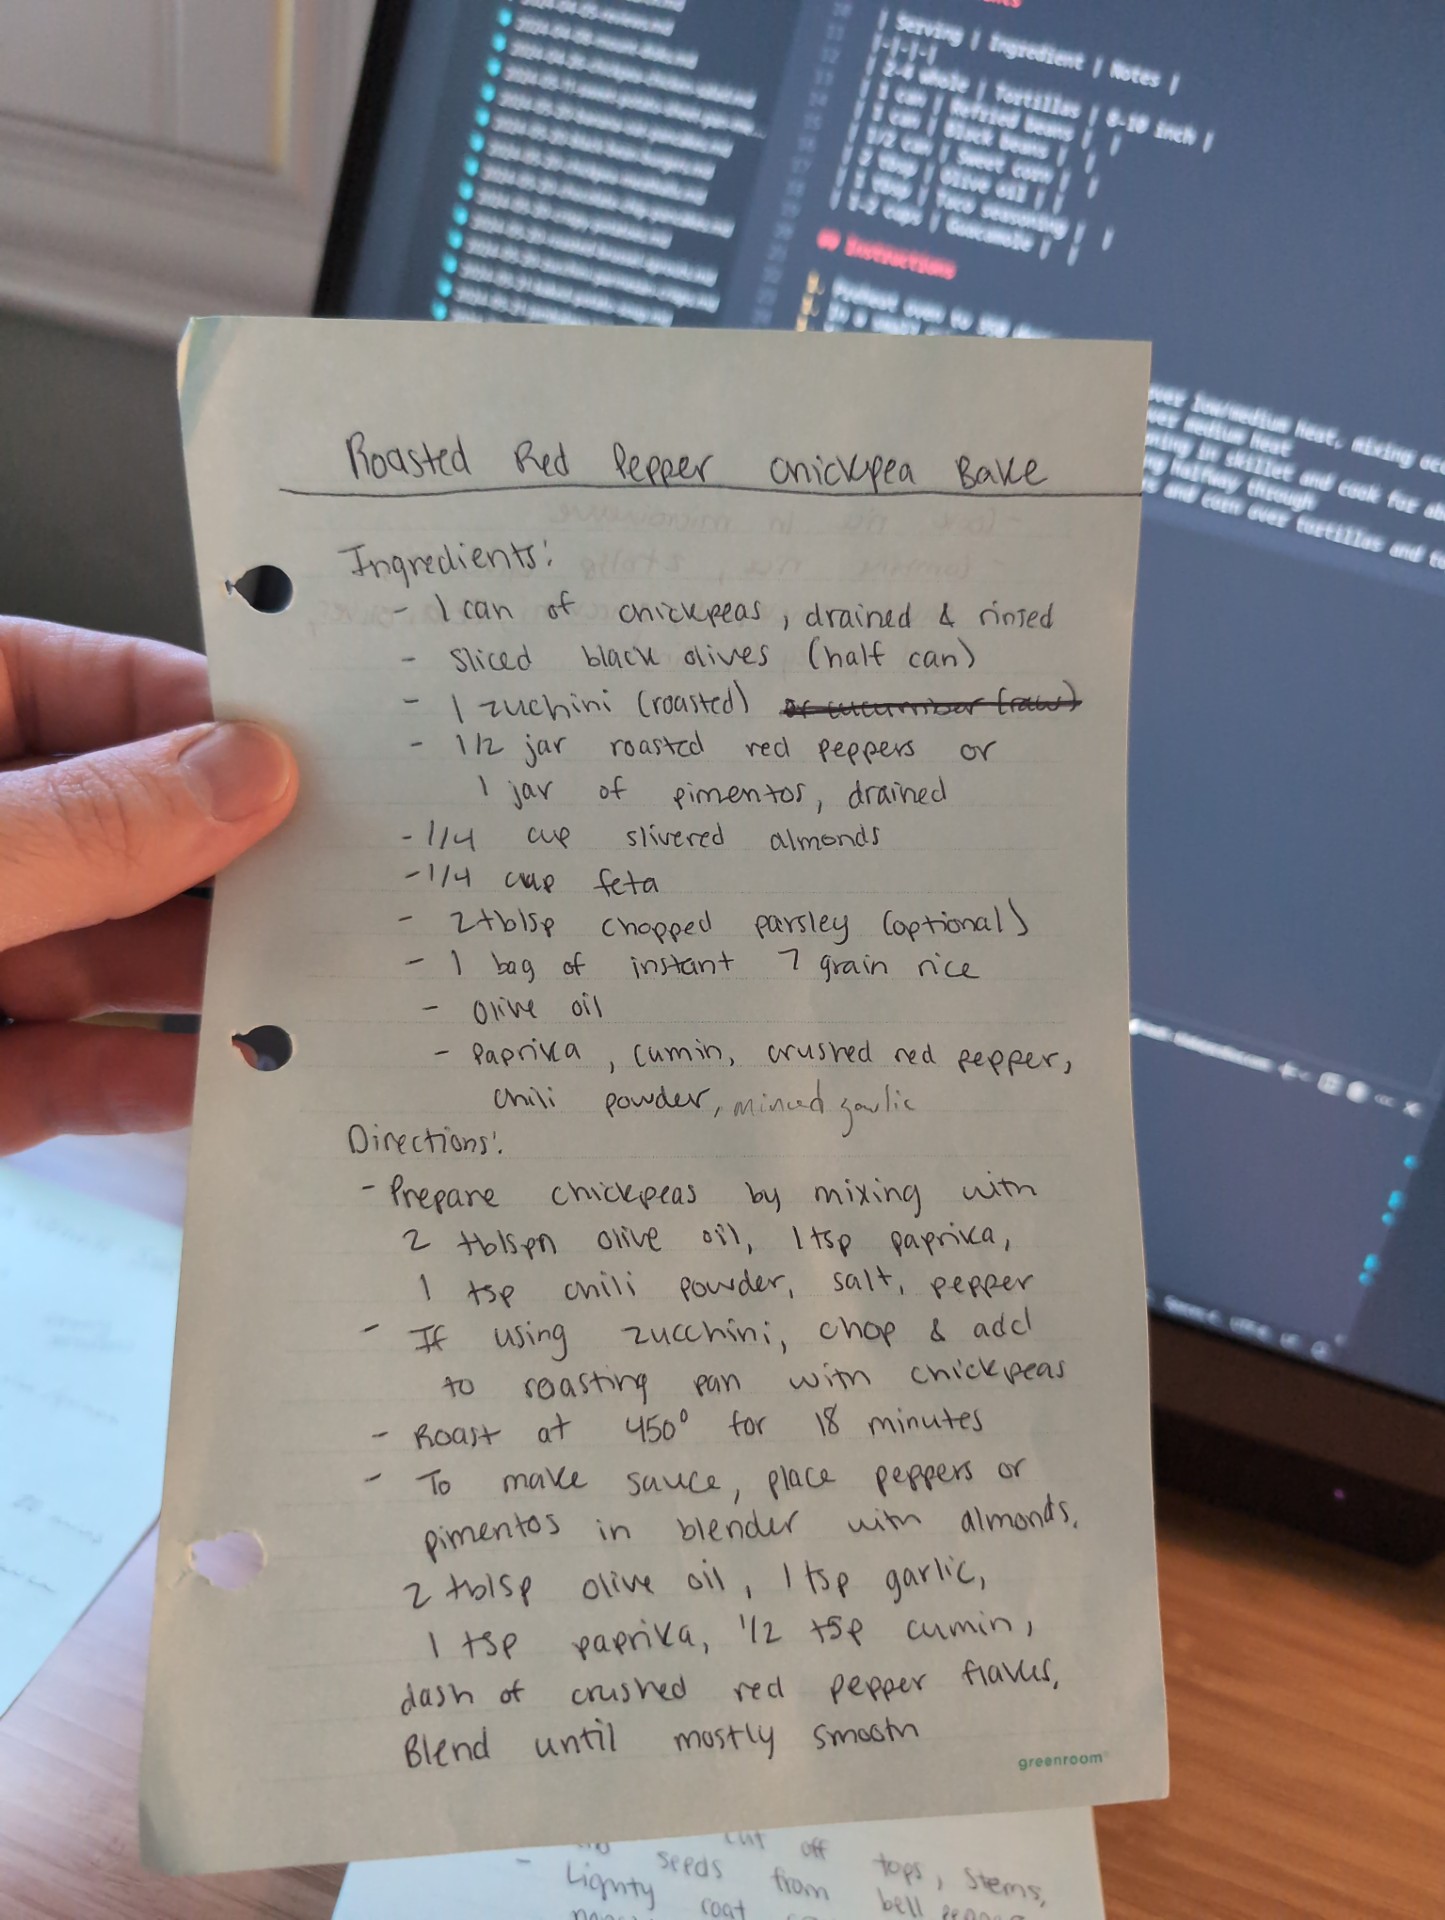 | Serving | Ingredient | Notes |
|-|-|-|
| 2-4 whole | Tortillas | 8-10 inch |
| 1 can | Refried beans | |
| 1 can | Black beans | |
| 1/2 can | Sweet corn | |
| 2 tbsp | Olive oil | |
| 1 tbsp | Taco seasoning | |
| 1-2 cups | Guacamole | |
## Instructions
Preheat oven to
over low/medium heat, mixing
over medium heat
in skillet and cook for
halfway through
and corn over tortillas and
Roasted Red Pepper Chickpea Bake
Ingredients:
- 1 can of chickpeas, drained & rinsed
- Sliced black olives (half can)
- 1 zuchini (roasted) or cucumber (raw)
- 1/2 jar roasted red peppers or
1 jar of pimentos, drained
- 1/4 cup slivered almonds
- 1/4 cup feta
- 2 tblsp chopped parsley (optional)
- 1 bag of instant 7 grain rice
- Olive oil
- Paprika, cumin, crushed red pepper,
chili powder, minced garlic
Directions:
- Prepare chickpeas by mixing with
2 tblspn olive oil, 1 tsp paprika,
1 tsp chili powder, salt, pepper
- If using zucchini, chop & add
to roasting pan with chickpeas
- Roast at 450° for 18 minutes
- To make sauce, place peppers or
pimentos in blender with almonds,
2 tblsp olive oil, 1 tsp garlic,
1 tsp paprika, 1/2 tsp cumin,
dash of crushed red pepper flakes,
Blend until mostly smooth
greenroom
cut off tops, stems,
seeds from bell
- Lightly coat